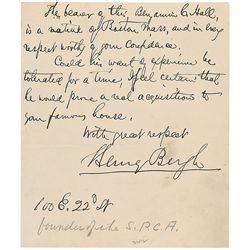 The bearer of this, Benjamin C. Hall,
is a native of Boston Mass, and in every
respect worthy of your confidence.
Could his want of experience be
tolerated for a time, I feel certain that
he would prove a real acquisition to
your famous house.
With great respect
Henry Bergh
100 E. 22d St
founder of the S.P.C.A.